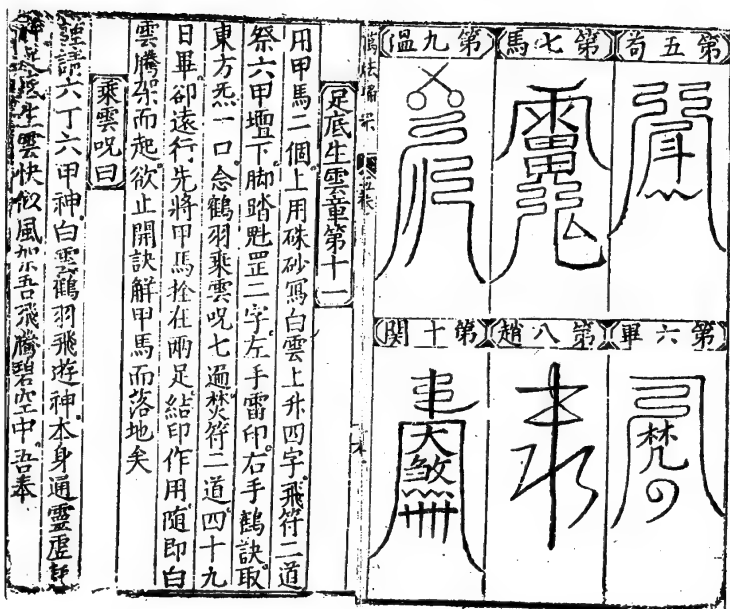 第五苟
第六畢
第七馬
第八趙
第九溫
第十関
萬法歸宗
足底生雲章第十一
用甲馬二個上用硃砂寫白雲上升四字飛符二道
祭六甲壇下脚踏魁罡二字左手雷印右手鶴訣取
東方炁一口念鶴羽乘雲呪七遍焚符二道四十九
日畢卻遠行先將甲馬拴在兩足結印作用隨即白
雲騰架而起欲止開訣解甲馬而落地矣
乘雲呪曰
謹請六丁六甲神白雲鶴羽飛遊神本身通靈虛靜
神足底生雲快似風如吾飛騰碧空中吾奉